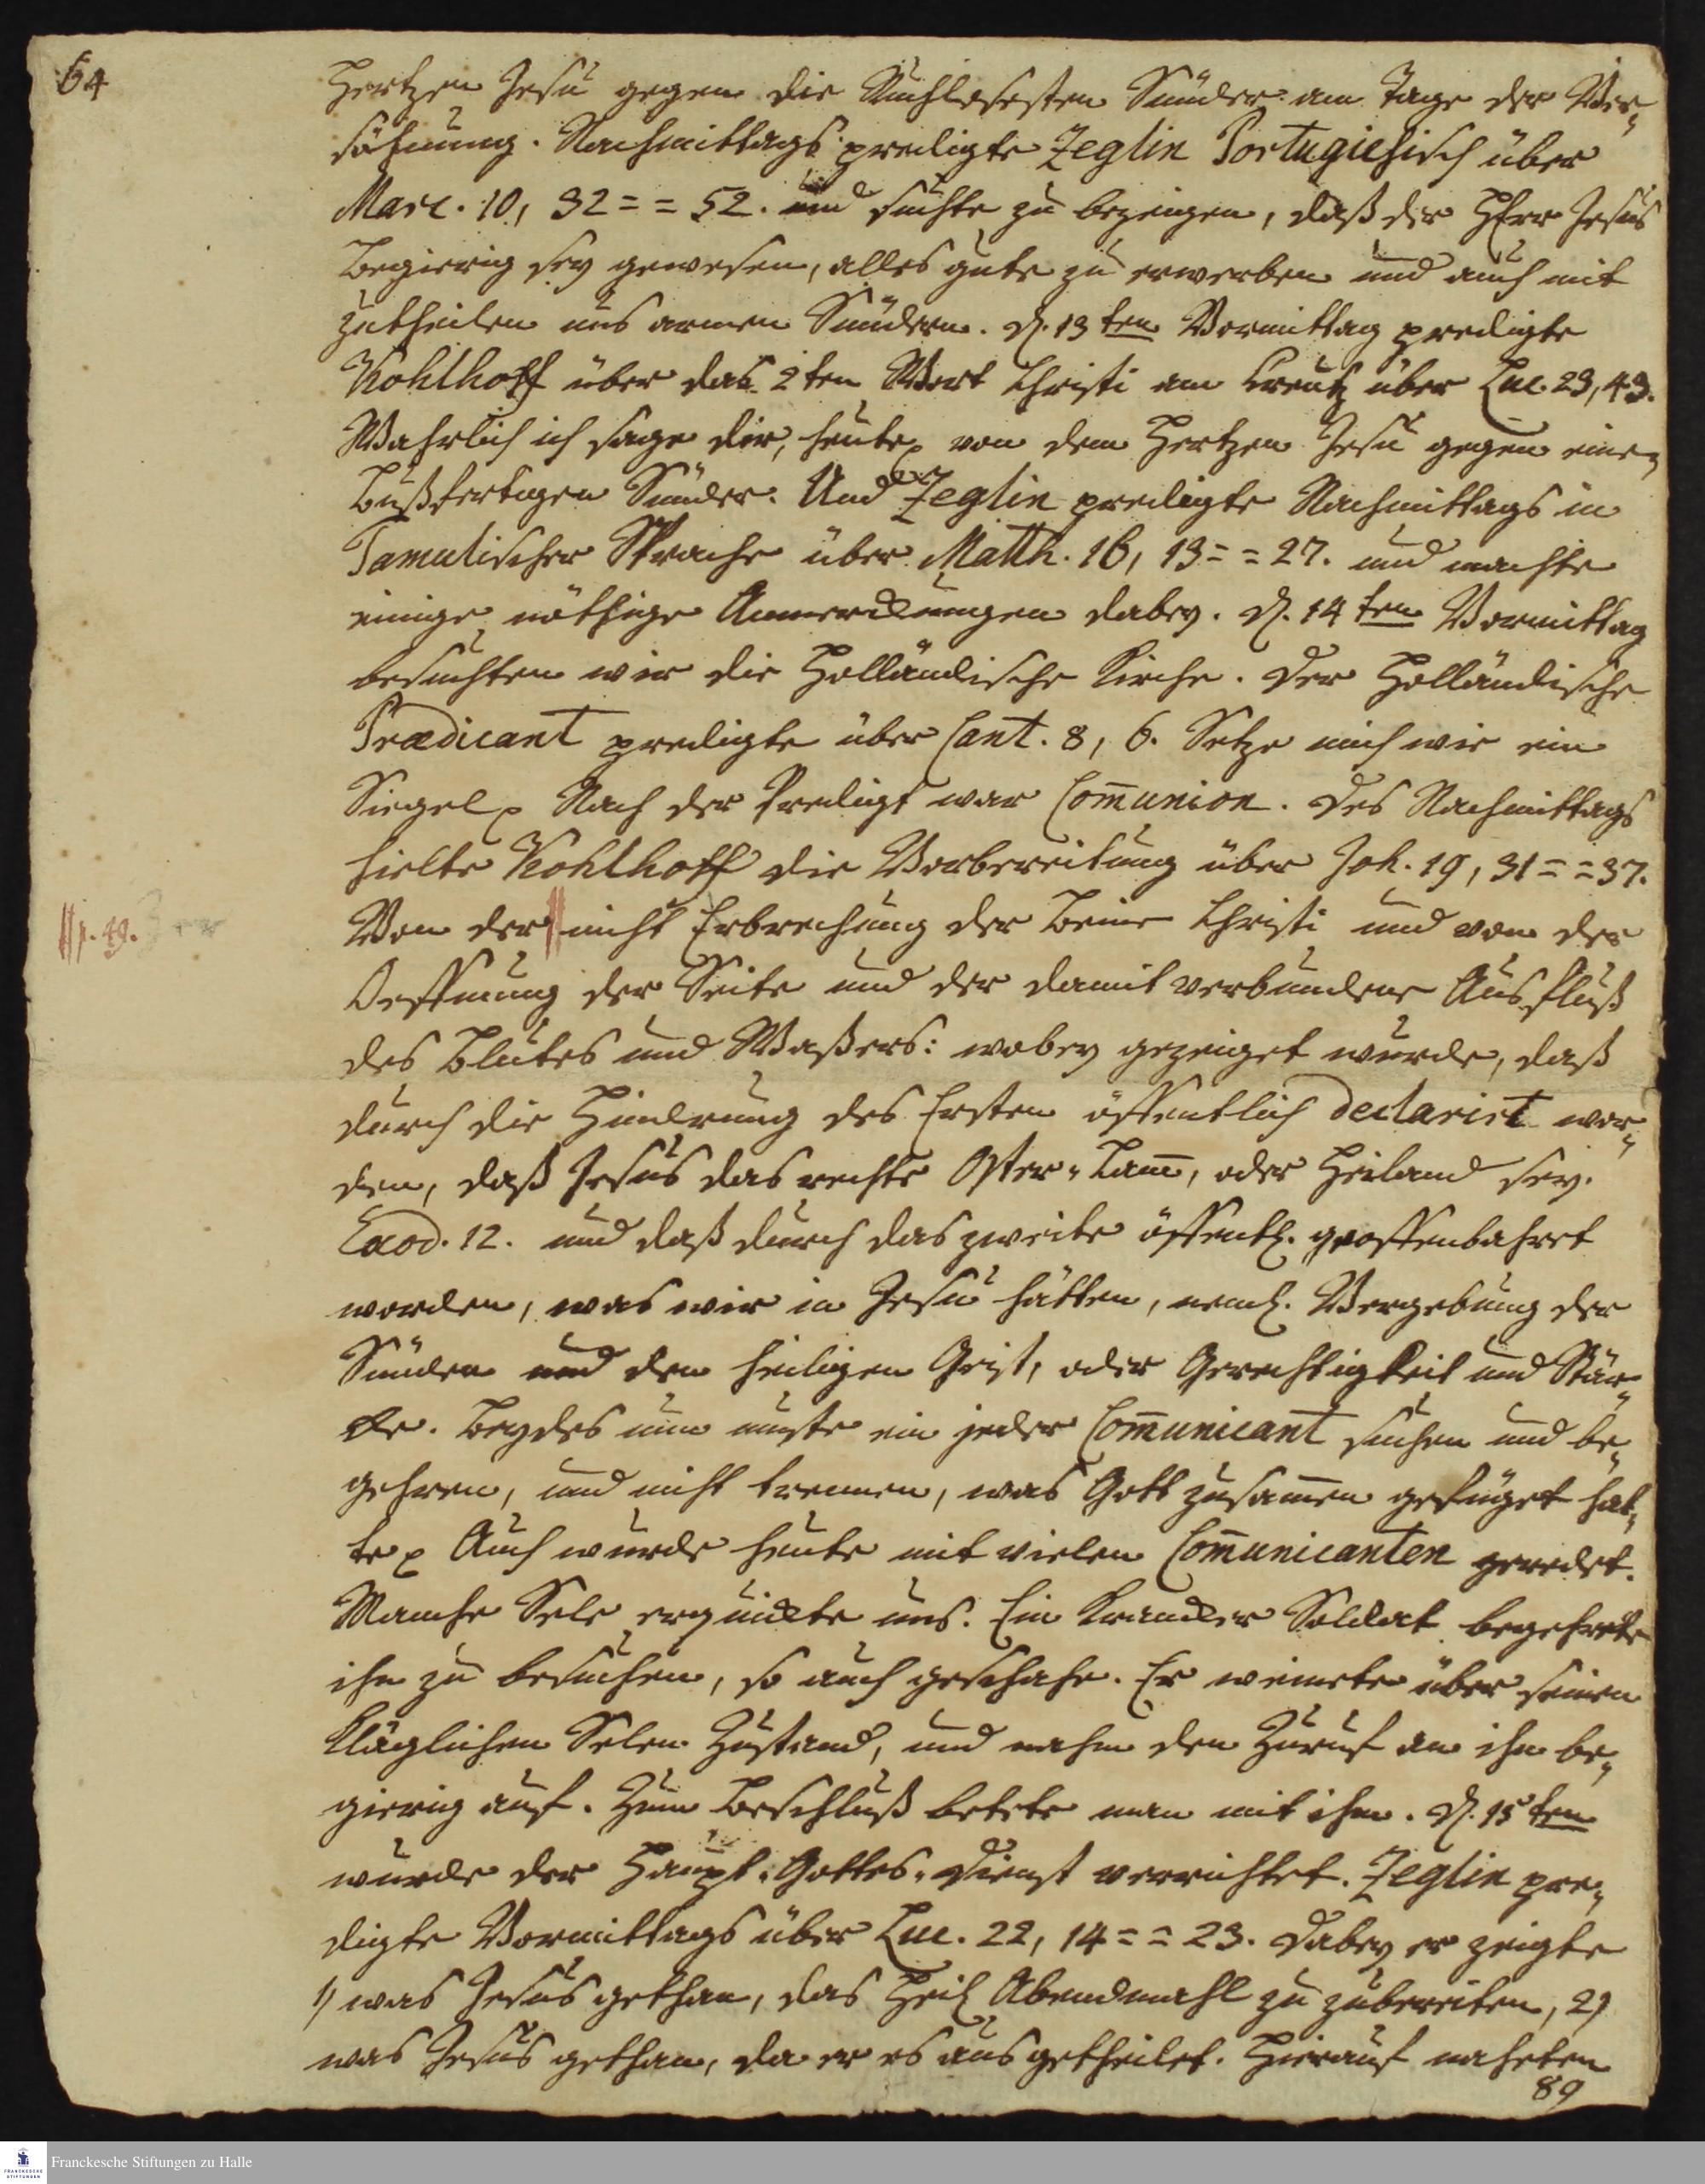 64
Hertzen Jesu gegen die Ruchlosesten Sünder am Tage der Ver-
söhnung. Nachmittags predigte Zeglin Portugiesisch über
Marc. 10, 32 = = 52. und suchte zu bezeugen, daß der HErr Jesus
begierig sey gewesen, alles gute zu erwerben und auch mit
zutheilen uns armen Sündern. d. 13ten Vormittag predigte
Kohlhoff über das 2ten Wort Christi am Creutz über Luc. 23, 43.
Wahrlich ich sage dir, heute p von dem Hertzen Jesu gegen einen
bußfertigen Sünder. Und Zeglin predigte Nachmittags in
Tamulischer Sprache über Matth. 16, 13 = = 27. und machte
einige nöthige Anmerckungen dabey. d. 14ten Vormittag
besuchten wir die Holländische Kirche. Der Holländische
Prædicant predigte über Cant. 8, 6. Setze mich wie ein
Siegel p Nach der Predigt war Com̄union. Des Nachmittags
hielte Kohlhoff die Vorbereitung über Joh. 19, 31 = = 37.
|| p. 49.
Von der || nicht Erbrechung der Beine Christi und von der
Oeffnung der Seite und der damit verbundene Ausfluß
des Blutes und Waßers: wobey gezeiget wurde, daß
durch die Hindrung des Ersten öffentlich declarirt wor-
den, daß Jesus das rechte Oster-Lam̄, oder Heiland sey.
Exod. 12. und daß durch das zweite öffentl. geoffenbahret
worden, was wir in Jesu hätten, neml. Vergebung der
Sünden und den heiligen Geist, oder Gerechtigkeit und Stär-
cke. Beydes nun muste ein jeder Com̄unicant suchen und be-
gehren, und nicht trennen, was Gott zusam̄en gefüget hat-
te p Auch wurde heute mit vielen Com̄unicanten geredet.
Manche Sele erquickte uns. Ein Krancker Soldat begehrte
ihn zu besuchen, so auch geschahe. Er weinete über seinen
kläglichen Selen Zustand, und nahm den Zuruf an ihn be-
gierig auf. Zum Beschluß betete man mit ihm. d. 15ten
wurde der Haupt-Gottes-Dienst verrichtet. Zeglin pre-
digte Vormittags über Luc. 22, 14 = = 23. Dabey er zeigte
1) was Jesus gethan, das Heil. Abendmahl zu zubereiten, 2)
was Jesus gethan, da er es ausgetheilet. Hierauf naheten
89
Franckesche Stiftungen zu Halle